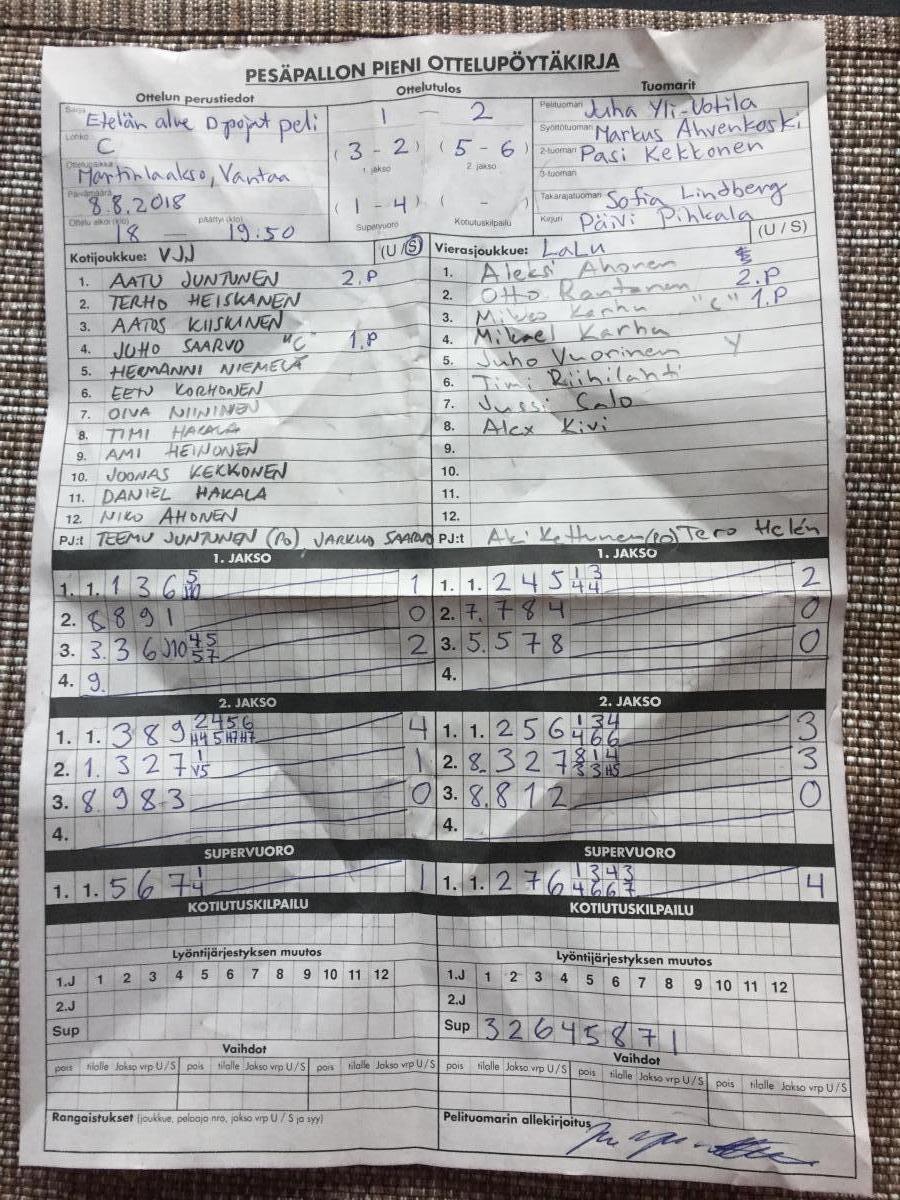 PESÄPALLON PIENI OTTELUPÖYTÄKIRJA
Ottelun perustiedot
Ottelutulos
Tuomarit
Sarja Etelän alve D-pojat peli
Lohko C
Ottelupaikka Martinlaakso, Vantaa
Päivämäärä 8.8.2018
Ottelu alkoi (klo) 18 — päättyi (klo) 19.50
1 — 2
(3 - 2) (5 - 6)
1. jakso 2. jakso
(1 - 4) ( - )
Supervuoro Kotiutuskilpailu
Pelituomari Juha Yli-Uotila
Syöttötuomari Markus Ahvenkoski
2-tuomari Pasi Kekkonen
3-tuomari
Takarajatuomari Sofia Lindberg
Kirjuri Päivi Pihkala
Kotijoukkue: VJJ (U/S)
1. AATU JUNTUNEN 2.P
2. TERHO HEISKANEN
3. AATOS KIISKINEN
4. JUHO SAARVO "C" 1.P
5. HERMANNI NIEMELÄ
6. EETU KORHONEN
7. OIVA NIININEN
8. TIMI HAKALA
9. AMI HEINONEN
10. JOONAS KEKKONEN
11. DANIEL HAKALA
12. NIKO AHONEN
PJ:t TEEMU JUNTUNEN (PO), JARKKO SAARVO
Vierasjoukkue: LaLu (U/S)
1. Aleksi Ahonen
2. Otto Rantanen 2.P
3. Mikko Karhu "C" 1.P
4. Mikael Karhu
5. Juho Vuorinen Y
6. Timi Riihilahti
7. Jussi Salo
8. Alex Kivi
9.
10.
11.
12.
PJ:t Aki Kettunen (PO) Tero Helén
1. JAKSO
1. 1. 1 3 6 1
2. 8 8 9 1 0
3. 3. 3 6 J10 4 5 2
5 7
4. 9.
1. JAKSO
1. 1. 2 4 5 1 3 2
4 4
2. 7. 7 8 4 0
3. 5. 5 7 8 0
4.
2. JAKSO
1. 1. 3 8 9 2 4 5 6 4
H4 5 H7 H7
2. 1. 3 2 7 1 1
V5
3. 8 9 8 3 0
4.
2. JAKSO
1. 1. 2 5 6 1 3 4 3
4 6 6
2. 8. 3 2 7 8 1 4 3
3 3 H5
3. 8. 8 1 2 0
4.
SUPERVUORO
1. 1. 5 6 7 1 1
4
SUPERVUORO
1. 1. 2 7 6 1 3 4 3 4
4 6 6 7
KOTIUTUSKILPAILU
KOTIUTUSKILPAILU
Lyöntijärjestyksen muutos
1.J 1 2 3 4 5 6 7 8 9 10 11 12
2.J
Sup
Lyöntijärjestyksen muutos
1.J 1 2 3 4 5 6 7 8 9 10 11 12
2.J
Sup 3 2 6 4 5 8 7 1
Vaihdot
pois tilalle Jakso vrp U/S pois tilalle Jakso vrp U/S pois tilalle Jakso vrp U/S
Vaihdot
pois tilalle Jakso vrp U/S pois tilalle Jakso vrp U/S pois tilalle Jakso vrp U/S
Rangaistukset (joukkue, pelaaja nro, jakso vrp U/S ja syy)
Pelituomarin allekirjoitus